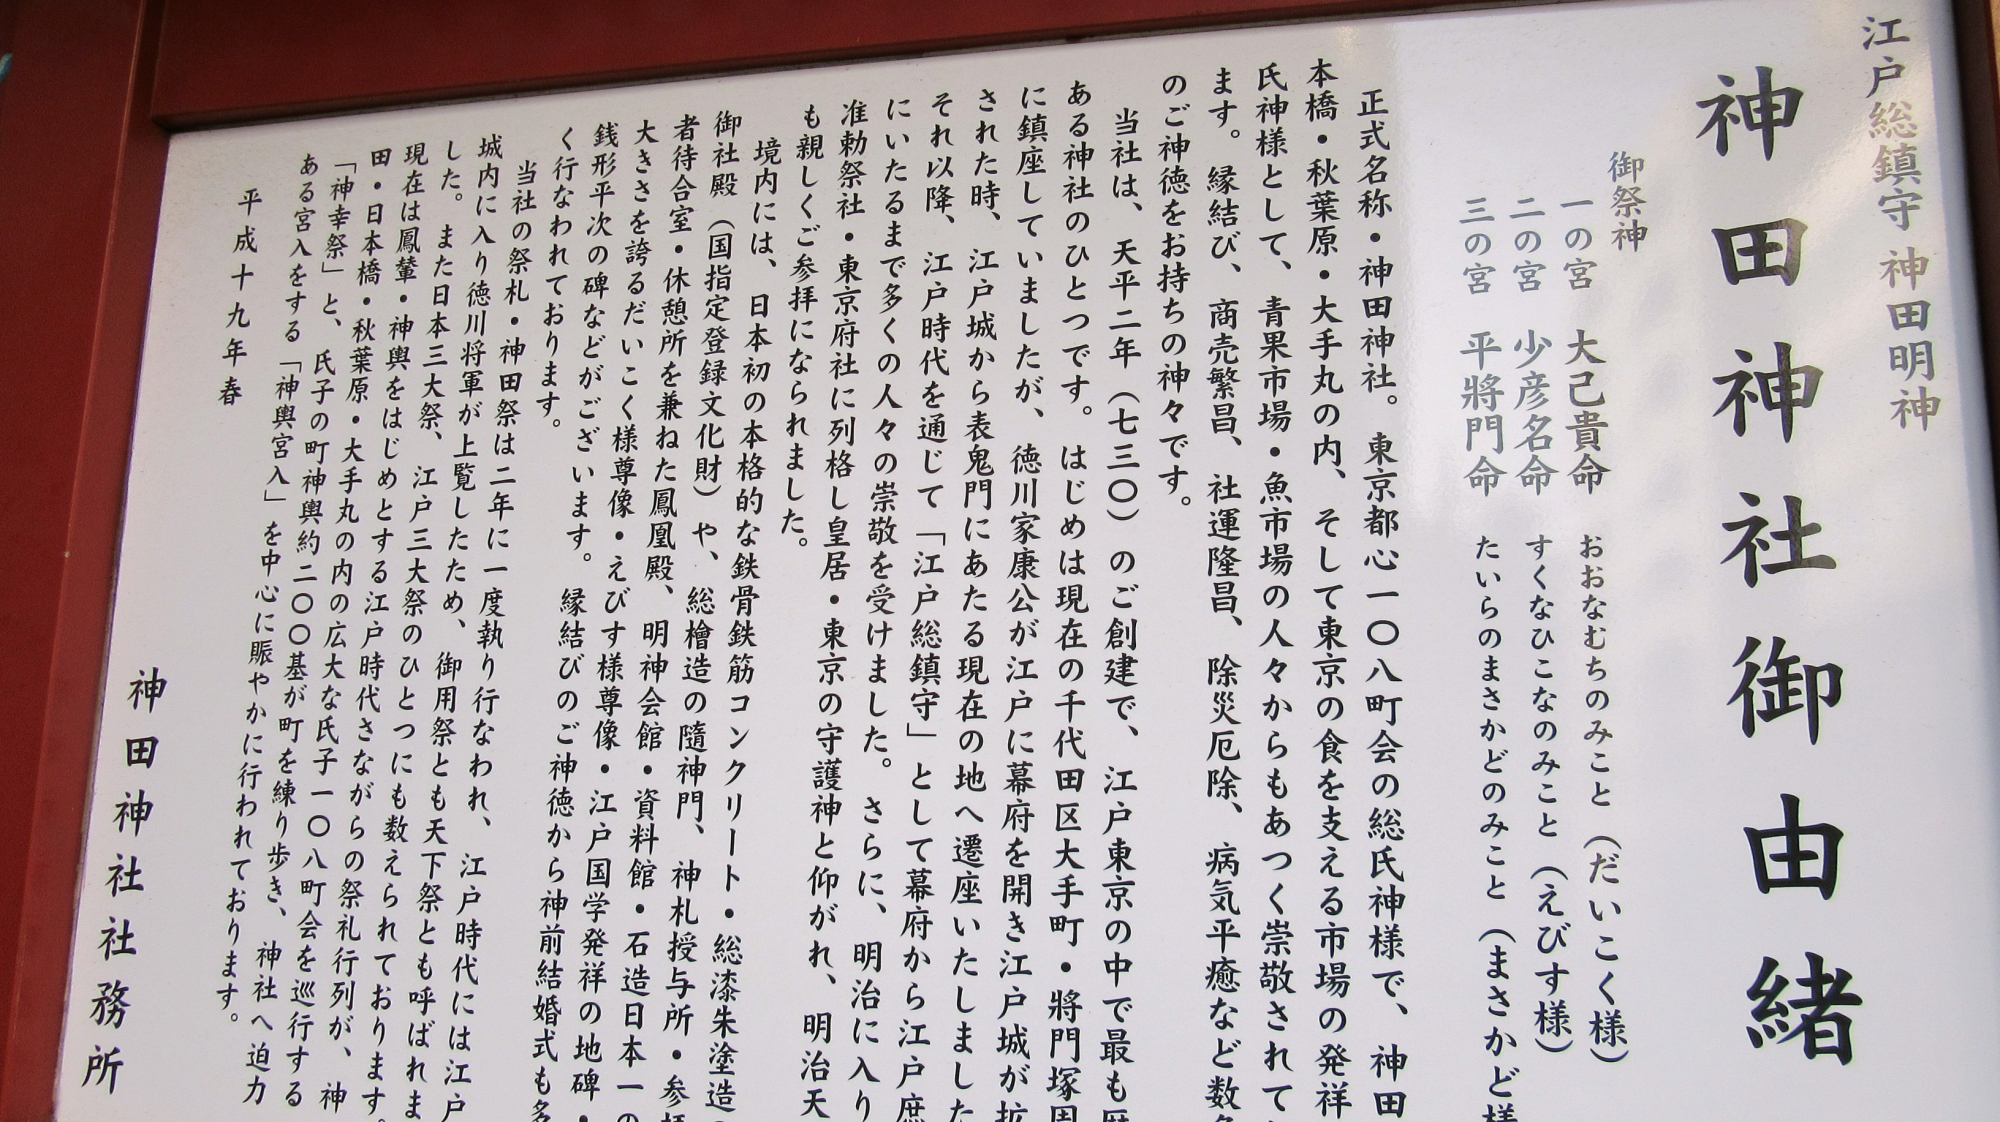 江戸総鎮守 神田明神
神田神社御由緒
御祭神
一の宮 大己貴命 おおなむちのみこと（だいこく様）
二の宮 少彦名命 すくなひこなのみこと（えびす様）
三の宮 平將門命 たいらのまさかどのみこと（まさかど様
正式名称・神田神社。東京都心一〇八町会の総氏神様で、神田
本橋・秋葉原・大手丸の内、そして東京の食を支える市場の発祥
氏神様として、青果市場・魚市場の人々からもあつく崇敬されて
ます。縁結び、商売繁昌、社運隆昌、除災厄除、病気平癒など数
のご神徳をお持ちの神々です。
当社は、天平二年（七三〇）のご創建で、江戸東京の中で最も
ある神社のひとつです。はじめは現在の千代田区大手町・將門塚周
に鎮座していましたが、徳川家康公が江戸に幕府を開き江戸城が拡
された時、江戸城から表鬼門にあたる現在の地へ遷座いたしました
それ以降、江戸時代を通じて「江戸総鎮守」として幕府から江戸庶
にいたるまで多くの人々の崇敬を受けました。さらに、明治に入り
准勅祭社・東京府社に列格し皇居・東京の守護神と仰がれ、明治天
も親しくご参拝になられました。
境内には、日本初の本格的な鉄骨鉄筋コンクリート・総漆朱塗造
御社殿（国指定登録文化財）や、総檜造の隨神門、神札授与所・参拝
者待合室・休憩所を兼ねた鳳凰殿、明神会館・資料館・石造日本一の
大きさを誇るだいこく様尊像・えびす様尊像・江戸国学発祥の地碑・
銭形平次の碑などがございます。縁結びのご神徳から神前結婚式も多
く行なわれております。
当社の祭札・神田祭は二年に一度執り行なわれ、江戸時代には江戸
城内に入り徳川将軍が上覧したため、御用祭とも天下祭とも呼ばれま
した。また日本三大祭、江戸三大祭のひとつにも数えられております。
現在は鳳輦・神輿をはじめとする江戸時代さながらの祭礼行列が、神
田・日本橋・秋葉原・大手丸の内の広大な氏子一〇八町会を巡行する
「神幸祭」と、氏子の町神輿約二〇〇基が町を練り歩き、神社へ迫力
ある宮入をする「神輿宮入」を中心に賑やかに行われております。
平成十九年春
神田神社社務所